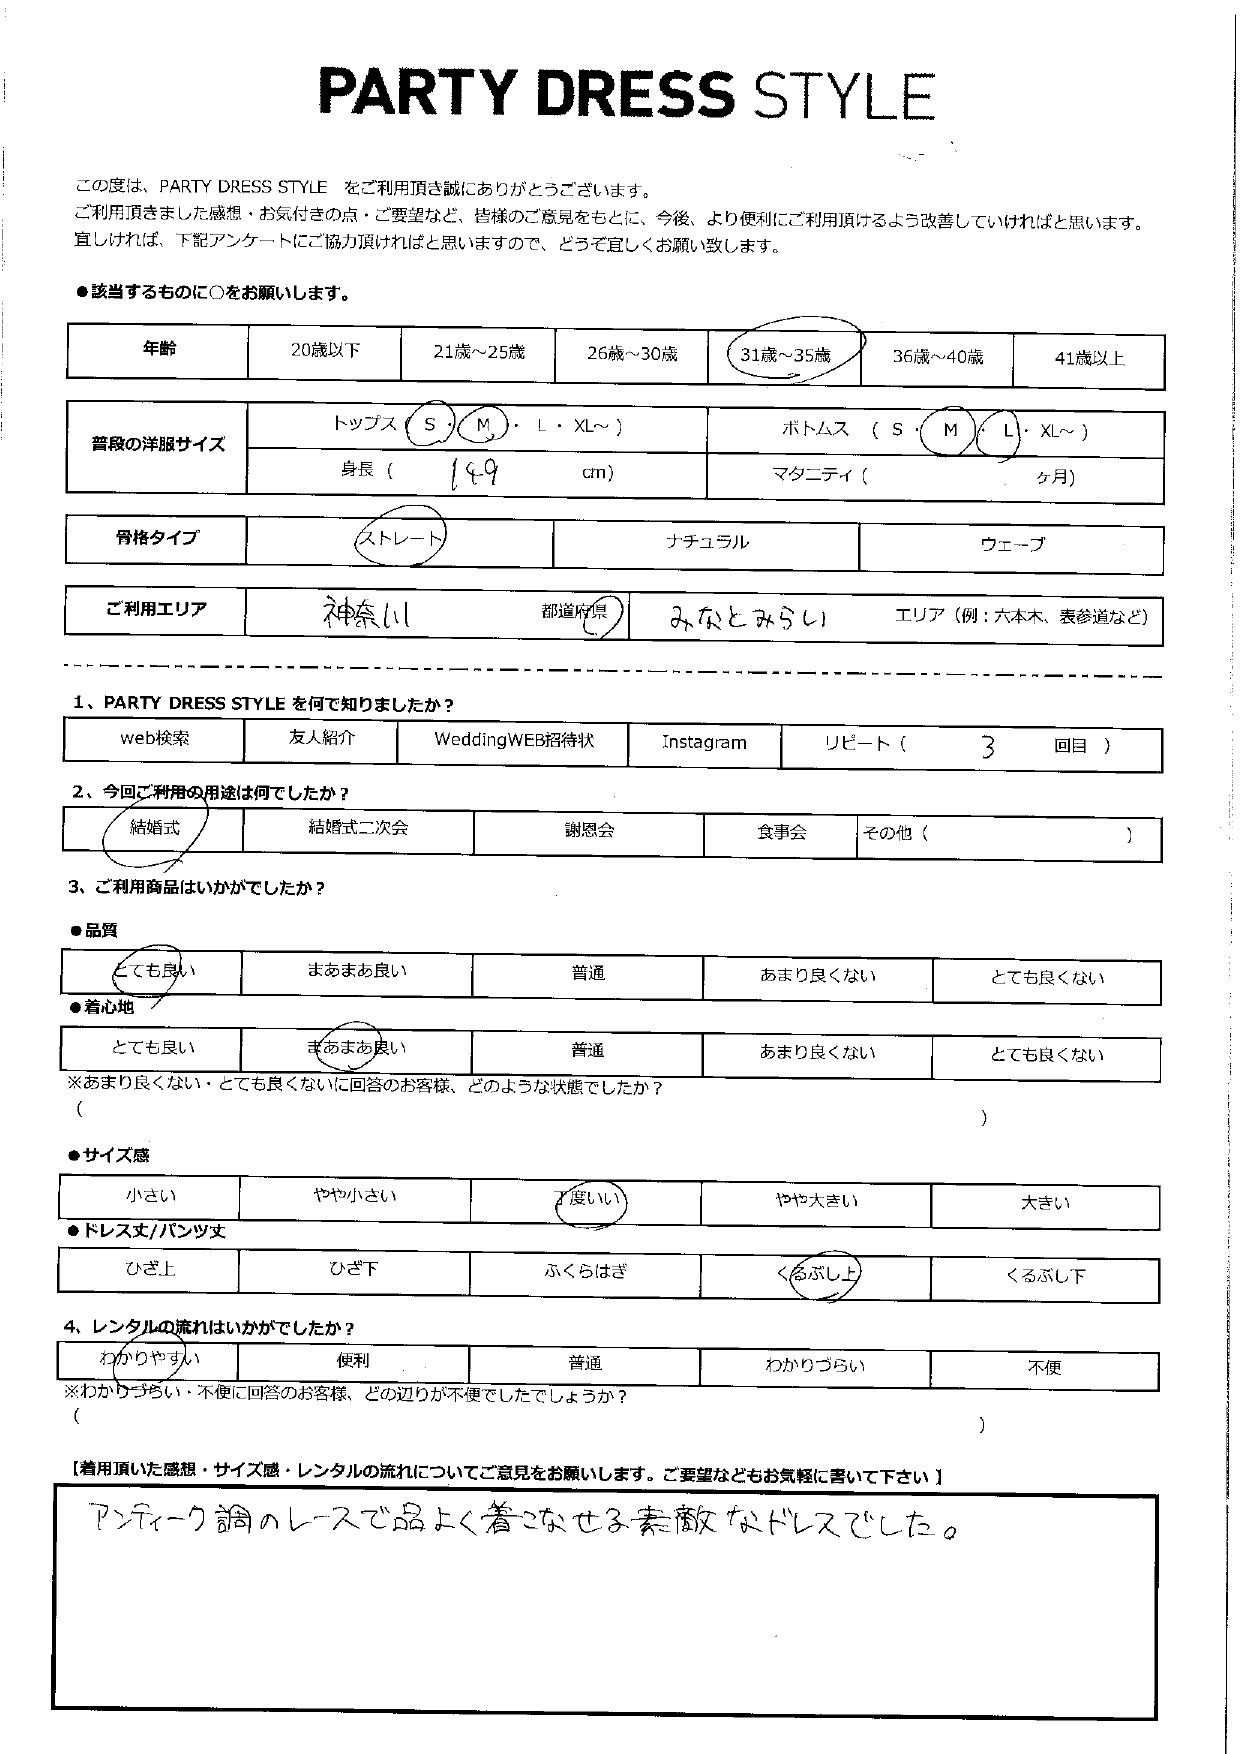 PARTY DRESS STYLE
この度は、PARTY DRESS STYLE をご利用頂き誠にありがとうございます。
ご利用頂きました感想・お気付きの点・ご要望など、皆様のご意見をもとに、今後、より便利にご利用頂けるよう改善していければと思います。
宜しければ、下記アンケートにご協力頂ければと思いますので、どうぞ宜しくお願い致します。
●該当するものに○をお願いします。
年齢 20歳以下 21歳～25歳 26歳～30歳 31歳～35歳 36歳～40歳 41歳以上
普段の洋服サイズ トップス ( S ・ M ・ L ・ XL～ ) ボトムス ( S ・ M ・ L ・ XL～ )
身長 ( 149 cm) マタニティ ( ヶ月)
骨格タイプ ストレート ナチュラル ウェーブ
ご利用エリア 神奈川 都道府県 みなとみらい エリア（例：六本木、表参道など）
1、PARTY DRESS STYLE を何で知りましたか？
web検索 友人紹介 WeddingWEB招待状 Instagram リピート ( 3 回目 )
2、今回ご利用の用途は何でしたか？
結婚式 結婚式二次会 謝恩会 食事会 その他 ( )
3、ご利用商品はいかがでしたか？
●品質
とても良い まあまあ良い 普通 あまり良くない とても良くない
●着心地
とても良い まあまあ良い 普通 あまり良くない とても良くない
※あまり良くない・とても良くないに回答のお客様、どのような状態でしたか？
( )
●サイズ感
小さい やや小さい 丁度いい やや大きい 大きい
●ドレス丈/パンツ丈
ひざ上 ひざ下 ふくらはぎ くるぶし上 くるぶし下
4、レンタルの流れはいかがでしたか？
わかりやすい 便利 普通 わかりづらい 不便
※わかりづらい・不便に回答のお客様、どの辺りが不便でしたでしょうか？
( )
【着用頂いた感想・サイズ感・レンタルの流れについてご意見をお願いします。ご要望などもお気軽に書いて下さい 】
アンティーク調のレースで品よく着こなせる素敵なドレスでした。